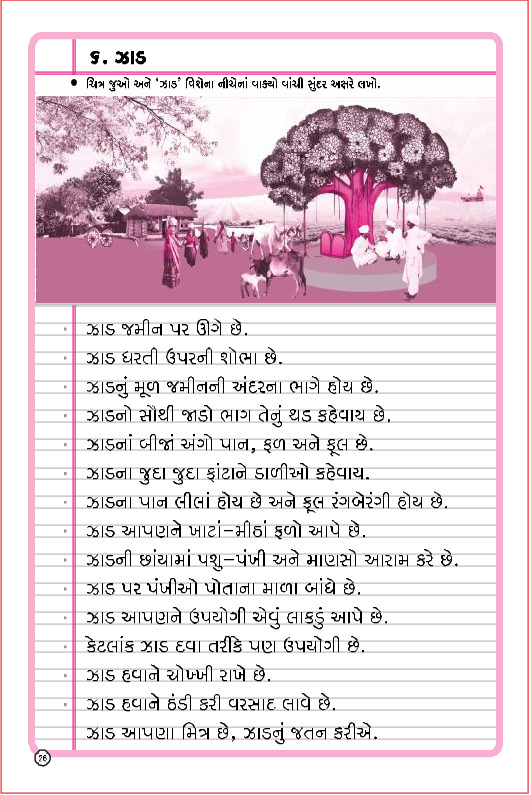 ૬. ઝાડ
● ચિત્ર જુઓ અને ‘ઝાડ’ વિશેના નીચેનાં વાક્યો વાંચી સુંદર અક્ષરે લખો.
• ઝાડ જમીન પર ઊગે છે.
• ઝાડ ધરતી ઉપરની શોભા છે.
• ઝાડનું મૂળ જમીનની અંદરના ભાગે હોય છે.
• ઝાડનો સૌથી જાડો ભાગ તેનું થડ કહેવાય છે.
• ઝાડનાં બીજાં અંગો પાન, ફળ અને ફૂલ છે.
• ઝાડના જુદા જુદા ફાંટાને ડાળીઓ કહેવાય.
• ઝાડના પાન લીલાં હોય છે અને ફૂલ રંગબેરંગી હોય છે.
• ઝાડ આપણને ખાટાં–મીઠાં ફળો આપે છે.
• ઝાડની છાંયામાં પશુ–પંખી અને માણસો આરામ કરે છે.
• ઝાડ પર પંખીઓ પોતાના માળા બાંધે છે.
• ઝાડ આપણને ઉપયોગી એવું લાકડું આપે છે.
• કેટલાંક ઝાડ દવા તરીકે પણ ઉપયોગી છે.
• ઝાડ હવાને ચોખ્ખી રાખે છે.
• ઝાડ હવાને ઠંડી કરી વરસાદ લાવે છે.
ઝાડ આપણા મિત્ર છે, ઝાડનું જતન કરીએ.
26